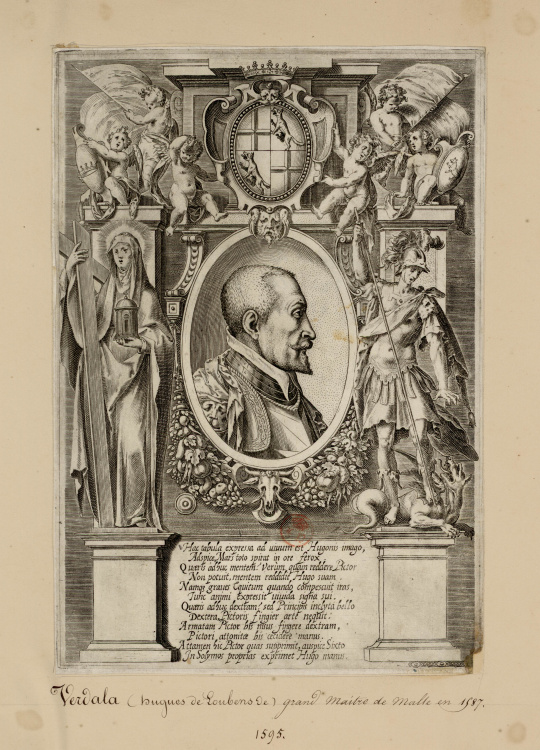 Hac tabula expressa ad uiuum est Hugonis imago,
Adspice, Mars toto spirat in ore ferox.
Quæris adhuc mentem? Verùm, quam reddere Pictor
Non potuit, mentem reddidit Hugo suam.
Namq; graues Equitum quando compescuit iras,
Tunc animi expressit uiuida signa sui.
Quæris adhuc dextram? sed Principis inclyta bello
Dextera, Pictoris fingier arte nequit.
Armatam Pictor bis fingere dextram,
Pictori attonitæ bis cecidere manus.
Attamen hic Pictor quas supprimit, auspice Sixto
In Solymos proprias exprimet Hugo manus.
Verdala (hugues de Loubens de) grand Maitre de Malte en 1587.
1595.